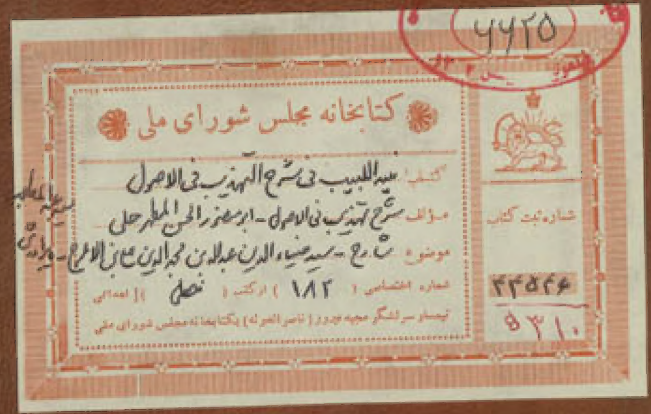 ۶۶۲۵
کتابخانه مجلس شورای ملی
کتاب منیة اللبیب فی شرح التهذیب فی الاصول
مؤلف شرح تهذیب فی الاصول - ابو منصور الحسن المطهر حلی
موضوع شارح - سید ضیاء الدین عبدالله بن مجدالدین
شماره اختصاصی ( ۱۸۲ ) از کتب ( خطی ) اهدائی
تیمسار سرلشگر مجید فیروز (ناصرالدوله) بکتابخانه مجلس شورای ملی
شماره ثبت کتاب
۴۴۵۴۶
۵۳۱۰